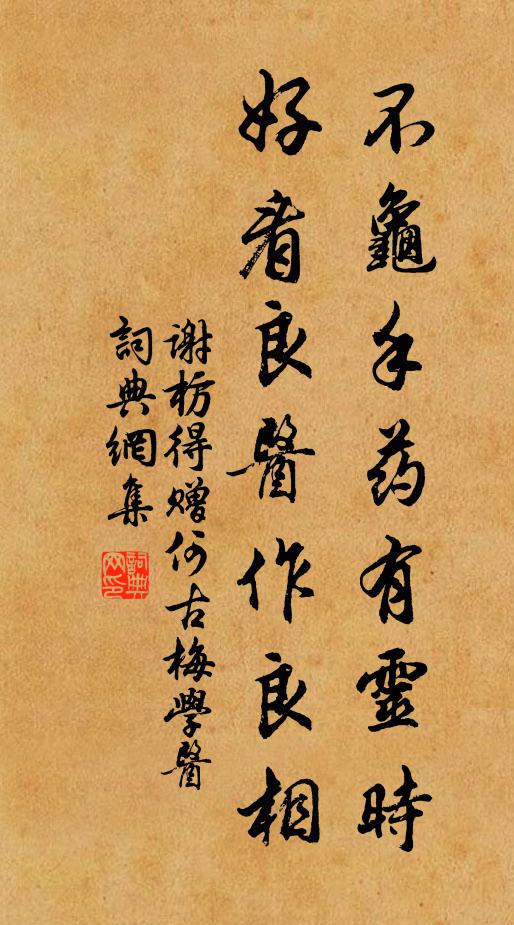 不龜手药有靈時
好看良醫作良相
谢枋得赠何古梅學醫
詞典網集
詞典网印